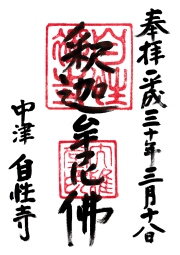 奉拝 平成三十年三月十八日
釈迦牟尼佛
中津 自性寺